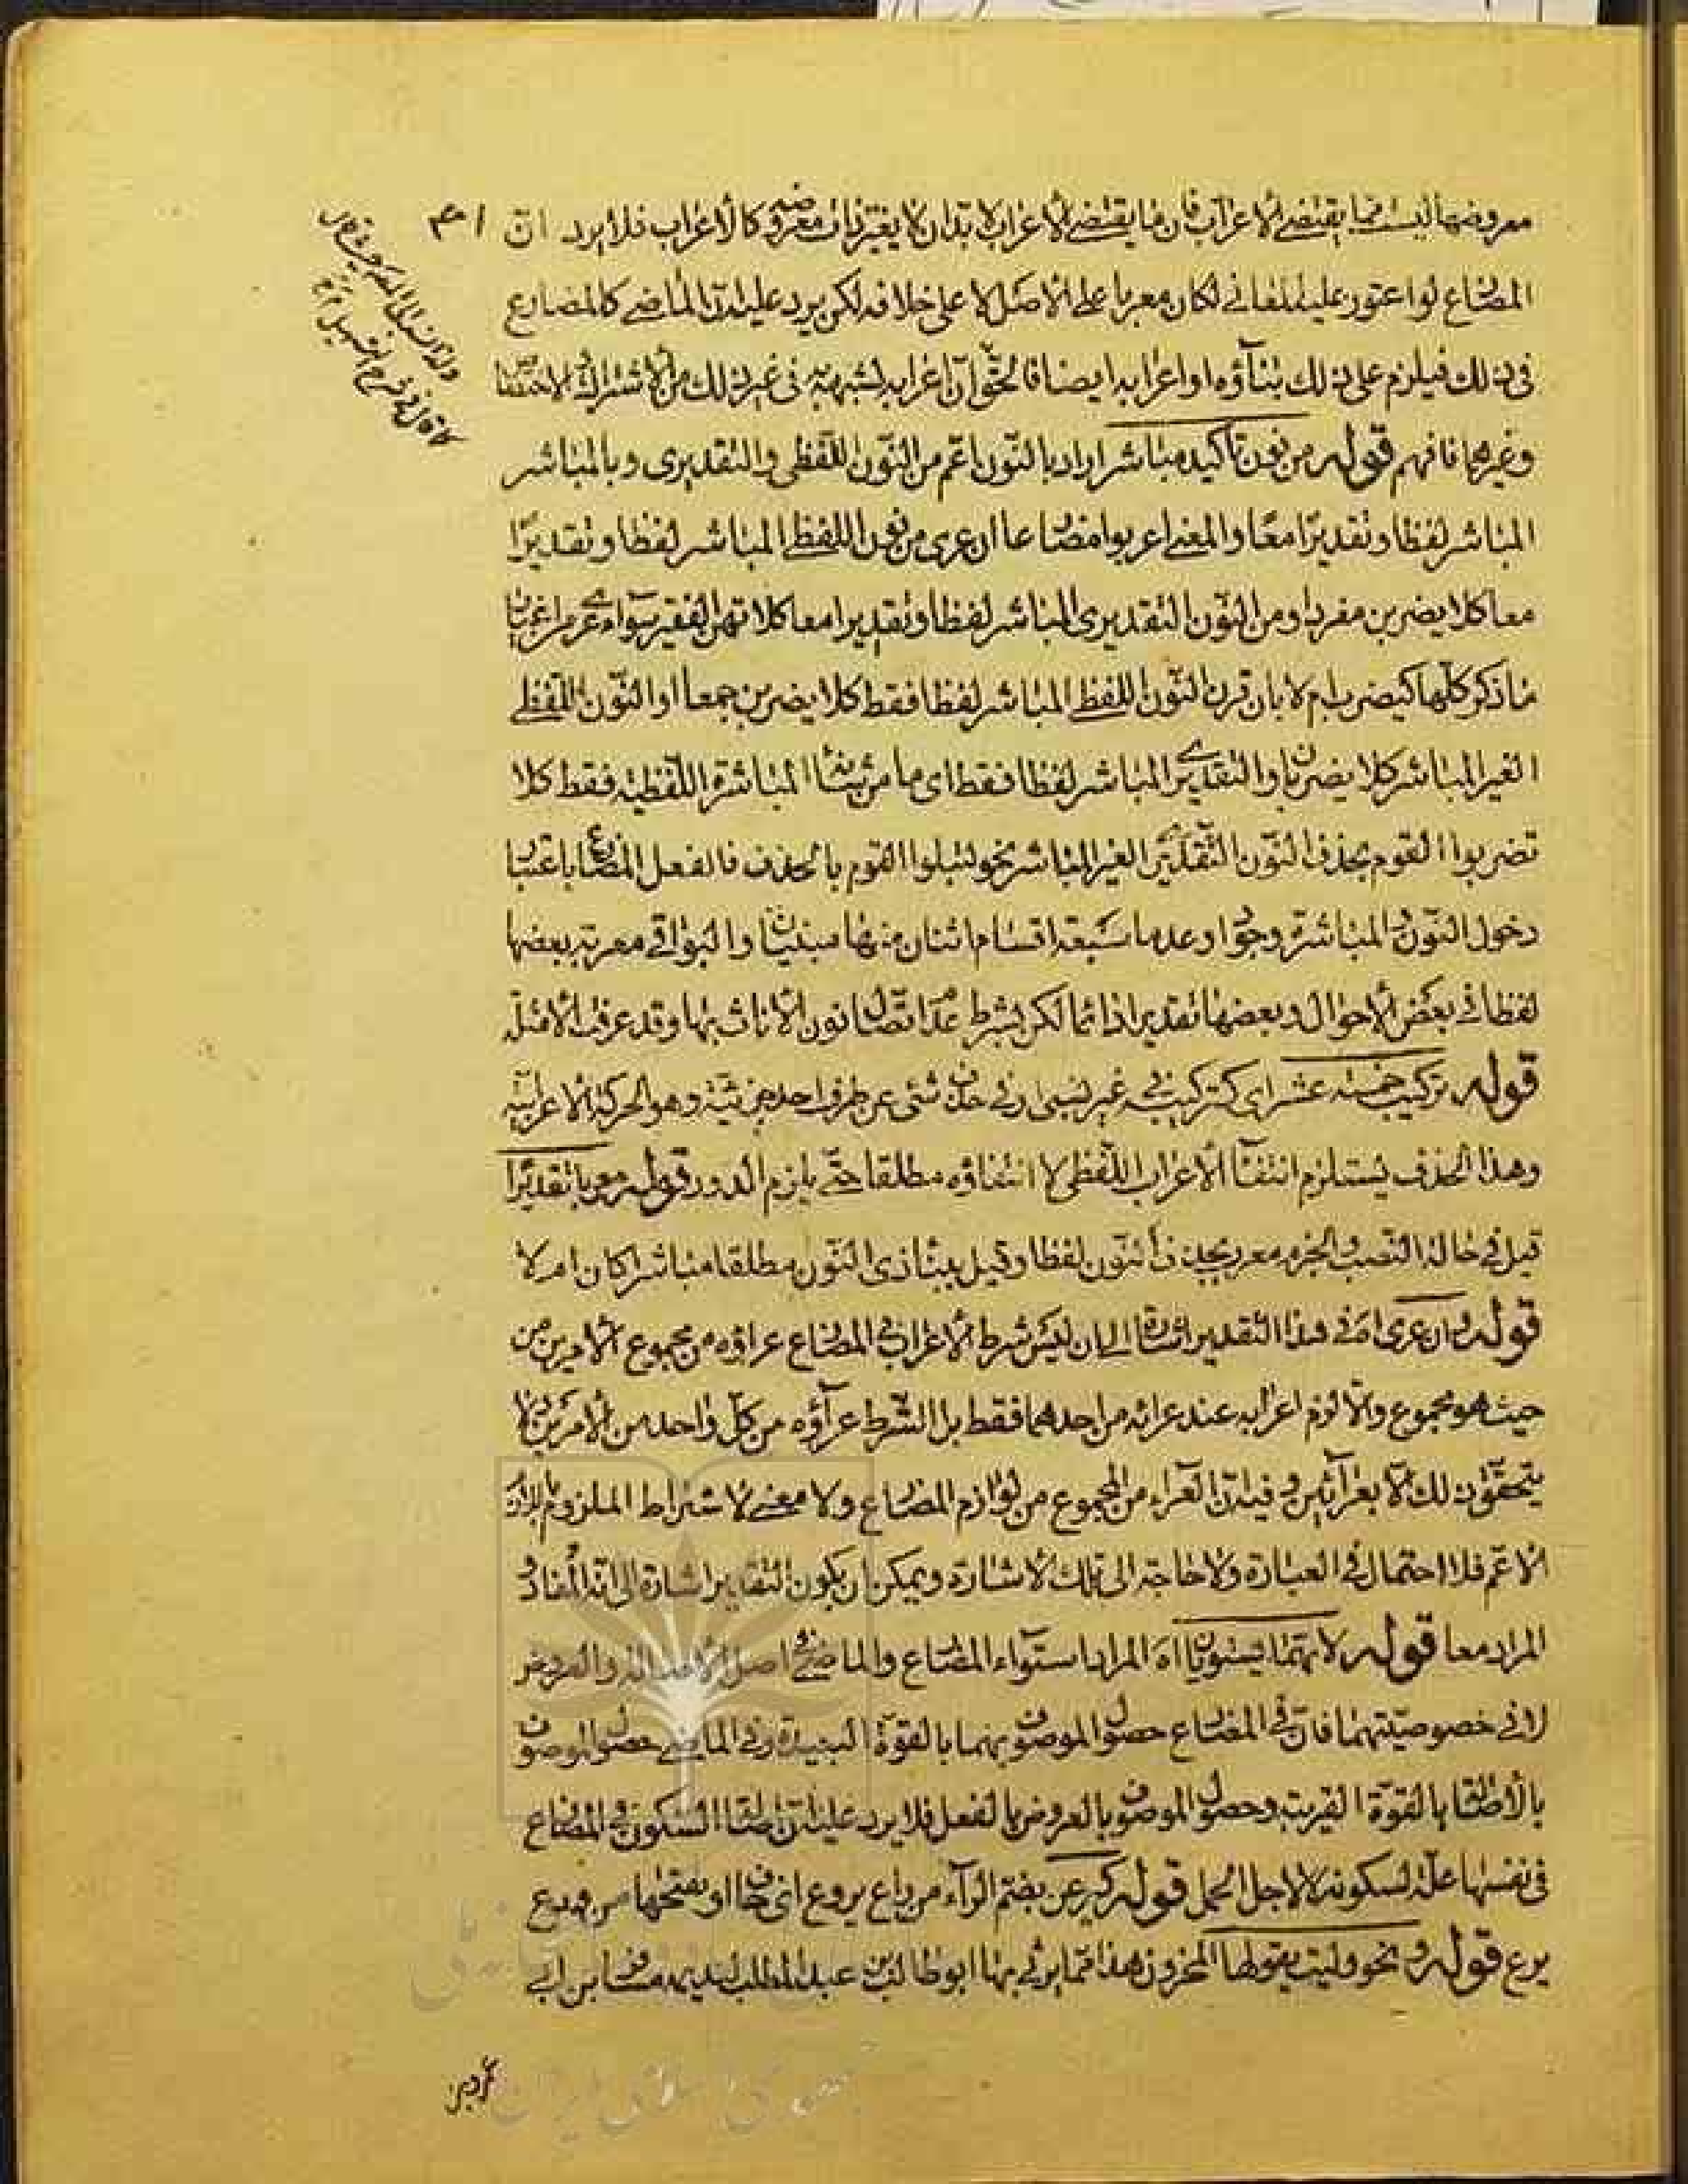 معروضها ليست مما يقتضي الاعراب فان ما يقتضي الاعراب لا بد ان لا يغير ذات معروضه كالاعراب فلا يرد ان
المضارع لو اعتور عليه المعاني لكان معربا على الاصل لا على خلافه لكن يرد عليه ان الماضي كالمضارع
في ذلك فيلزم على ذلك بناؤه او اعرابه ايضا فالحق ان اعرابه لشبهه به في غير ذلك من الاشتراك والاختصاص
وغيرهما فافهم قوله من نون تاكيد مباشر اراد بالنون اعم من النون اللفظي والتقديري وبالمباشر
المباشر لفظا وتقديرا معا والمعنى اعربوا مضارعا ان عري من نون اللفظي المباشر لفظا وتقديرا
معا كلا يضربن مفردا ومن النون التقديري المباشر لفظا وتقديرا معا كلا تهين الفقير سواء عري من
ما ذكر كلها كيضرب ام لا بان قرن النون اللفظي المباشر لفظا فقط كلا يضربن جمعا او النون اللفظي
الغير المباشر كلا يضربان او التقديري المباشر لفظا فقط اي ما من شانه المباشرة اللفظية فقط كلا
تضربوا القوم بحذف النون التقديري الغير المباشر نحو لتبلوا القوم بالحذف فالفعل المضارع باعتبار
دخول النون والمباشرة وجودا وعدما سبعة اقسام اثنان منها مبنيان والبواقي معربة بعضها
لفظا في بعض الاحوال وبعضها تقديرا دائما لكن بشرط عدم اتصال نون الاناث بها وقد عرفت الامثلة
قوله تركيب خمسة عشر اي كتركيب في غير حذف شئ عن طرف احد جزئيه وهو الحركة الاعرابية
وهذا الحذف يستلزم انتفاء الاعراب اللفظي لا انتفاؤه مطلقا حتى يلزم الدور قوله معربا تقديرا
قيل في حالة النصب والجزم معرب بحذف النون لفظا وقيل ببناء ذي النون مطلقا مباشرا كان ام لا
قوله وان عري اه في هذا التقدير اشارة الى ان ليس شرط الاعراب في المضارع عراؤه من مجموع الامرين من
حيث هو مجموع والا لزم اعرابه عند عرائه من احدهما فقط بل الشرط عراؤه من كل واحد من الامرين ولا
يتحقق ذلك الا بعرائين وفيه ان العراء من المجموع من لوازم المضارع ولا معنى لاشتراط الملزوم باللازم
الاعم فلا احتمال في العبارة ولا حاجة الى تلك الاشارة ويمكن ان يكون التقدير اشارة الى انه المفاد و
المراد معا قوله لانهما يستويان اه المراد استواء المضارع والماضي في اصل الاصالة والعروض
لا في خصوصيتهما فان في المضارع حصول الموصوف بهما بالقوة البعيدة وفي الماضي حصول الموصوف
بالاصالة بالقوة القريبة وحصول الموصوف بالعروض بالفعل فلا يرد عليه ان اصالة السكون في المضارع
في نفسها علة لسكونه لا لاجل الحمل قوله كيرعن بضم الراء من راع يروع اي خاف او بفتحها من ورع
يرع قوله ونحو وليت يقولها المحزون هذا مما يرثي بها ابو طالب بن عبد المطلب نديمه مسافر بن ابي